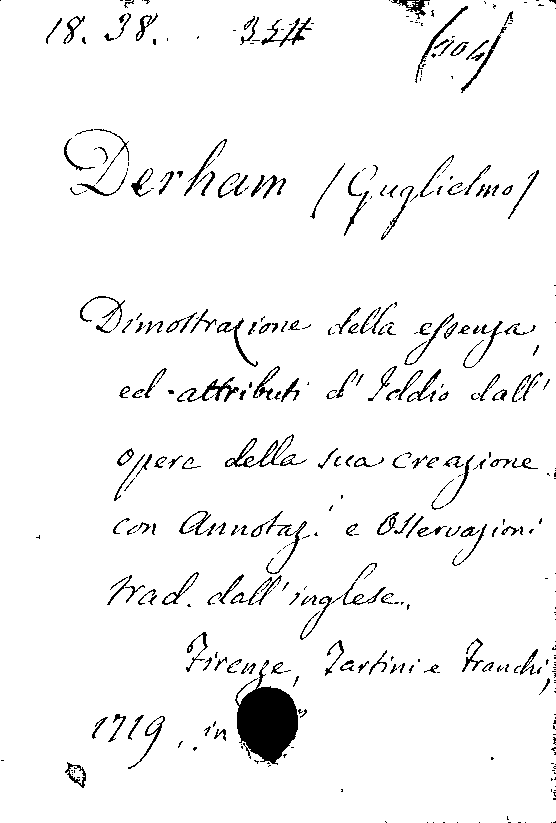 18. 38.
Derham (Guglielmo)
Dimostrazione della essenza,
ed attributi d' Iddio dall'
opere della sua creazione
con Annotaz.i e Osservazioni
trad. dall' inglese.
Firenze, Tartini e Franchi,
1719, in